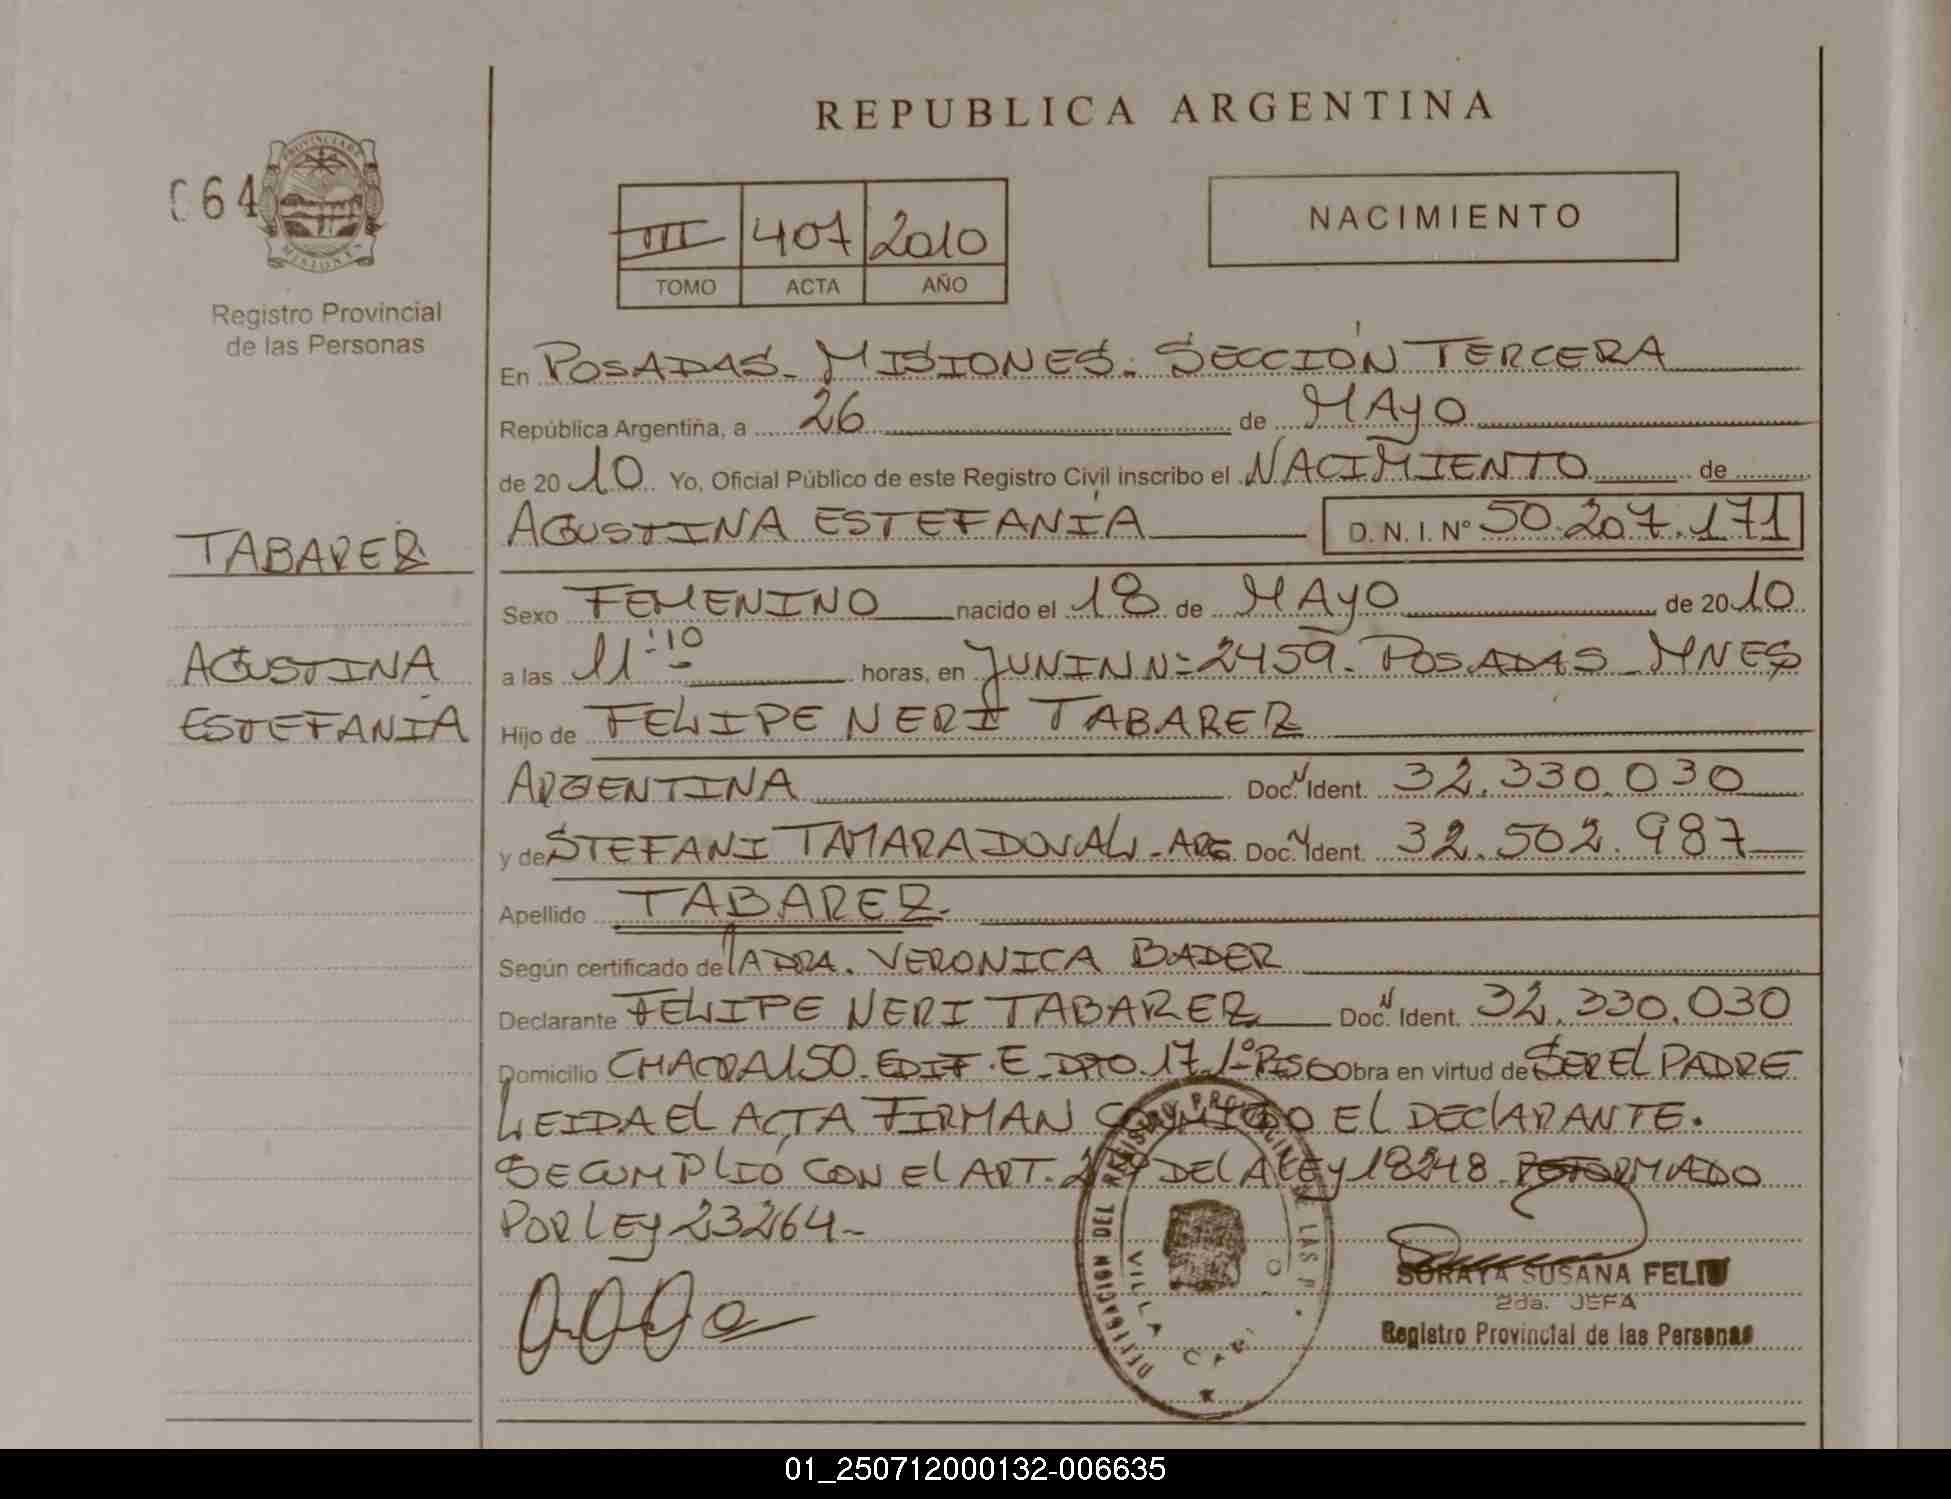 REPUBLICA ARGENTINA
064
PROVINCIA DE
MISIONES
Registro Provincial
de las Personas
III 407 2010
TOMO ACTA AÑO
NACIMIENTO
En POSADAS - MISIONES. SECCIÓN TERCERA
República Argentina, a 26 de MAYO
de 2010 Yo, Oficial Público de este Registro Civil inscribo el NACIMIENTO de
AGUSTINA ESTEFANÍA D. N. I. Nº 50.207.171
TABAREZ
Sexo FEMENINO nacido el 18 de MAYO de 2010
AGUSTINA
a las 11:10 horas, en JUNIN Nº 2459. POSADAS - MNES
ESTEFANÍA
Hijo de FELIPE NERI TABAREZ
ARGENTINA Doc. N Ident. 32.330.030
y de STEFANI TAMARA DOVAL - ARG. Doc. N Ident. 32.502.987
Apellido TABAREZ.
Según certificado de LA DRA. VERONICA BADER
Declarante FELIPE NERI TABAREZ Doc. N Ident. 32.330.030
Domicilio CHACRA 150. EDIF. E - DPTO. 17. 1º PISO Obra en virtud de SER EL PADRE
LEIDA EL ACTA FIRMAN CONMIGO EL DECLARANTE.
SE CUMPLIÓ CON EL ART. 2º DE LA LEY 18248. REFORMADO
POR LEY 23264 -
DELEGACION DEL REGISTRO PROVINCIAL DE LAS P.
VILLA CABELLO
SORAYA SUSANA FELIU
2da. JEFA
Registro Provincial de las Personas
01_250712000132-006635